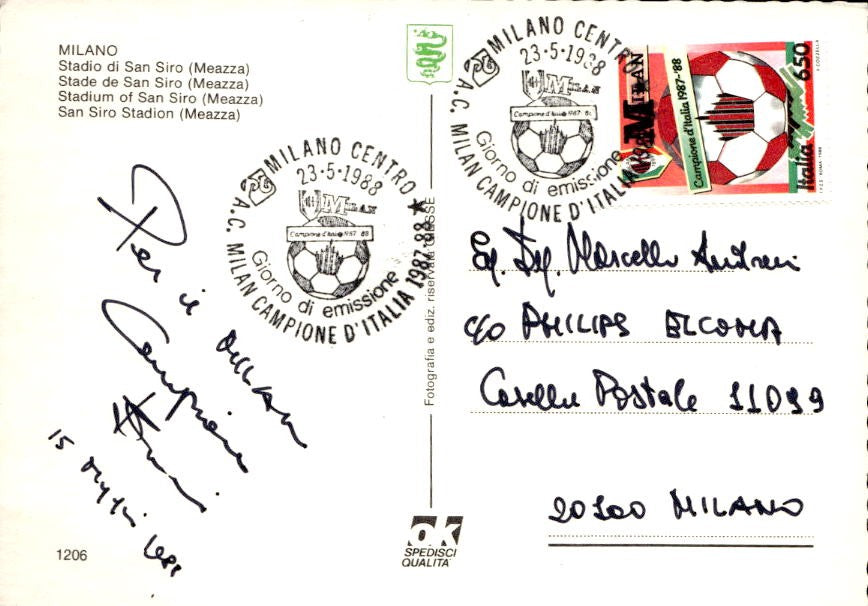 MILANO
Stadio di San Siro (Meazza)
Stade de San Siro (Meazza)
Stadium of San Siro (Meazza)
San Siro Stadion (Meazza)
MILANO CENTRO
23-5-1988
MILAN
Campione d'Italia 1987-88
Giorno di emissione
A.C. MILAN CAMPIONE D'ITALIA 1987-88
MILANO CENTRO
23-5-1988
MILAN
Campione d'Italia 1987-88
Giorno di emissione
A.C. MILAN CAMPIONE D'ITALIA 1987-88
MILAN
Campione d'Italia 1987-'88
Italia 650
I.P.Z.S. - ROMA - 1988
Per il MILAN
Campione
15 1988
Fotografia e ediz. riservata
Eg. Marcello Andreni
c/o PHILIPS ELCOMA
Casella Postale 11039
20100 MILANO
1206
ok
SPEDISCI
QUALITA'